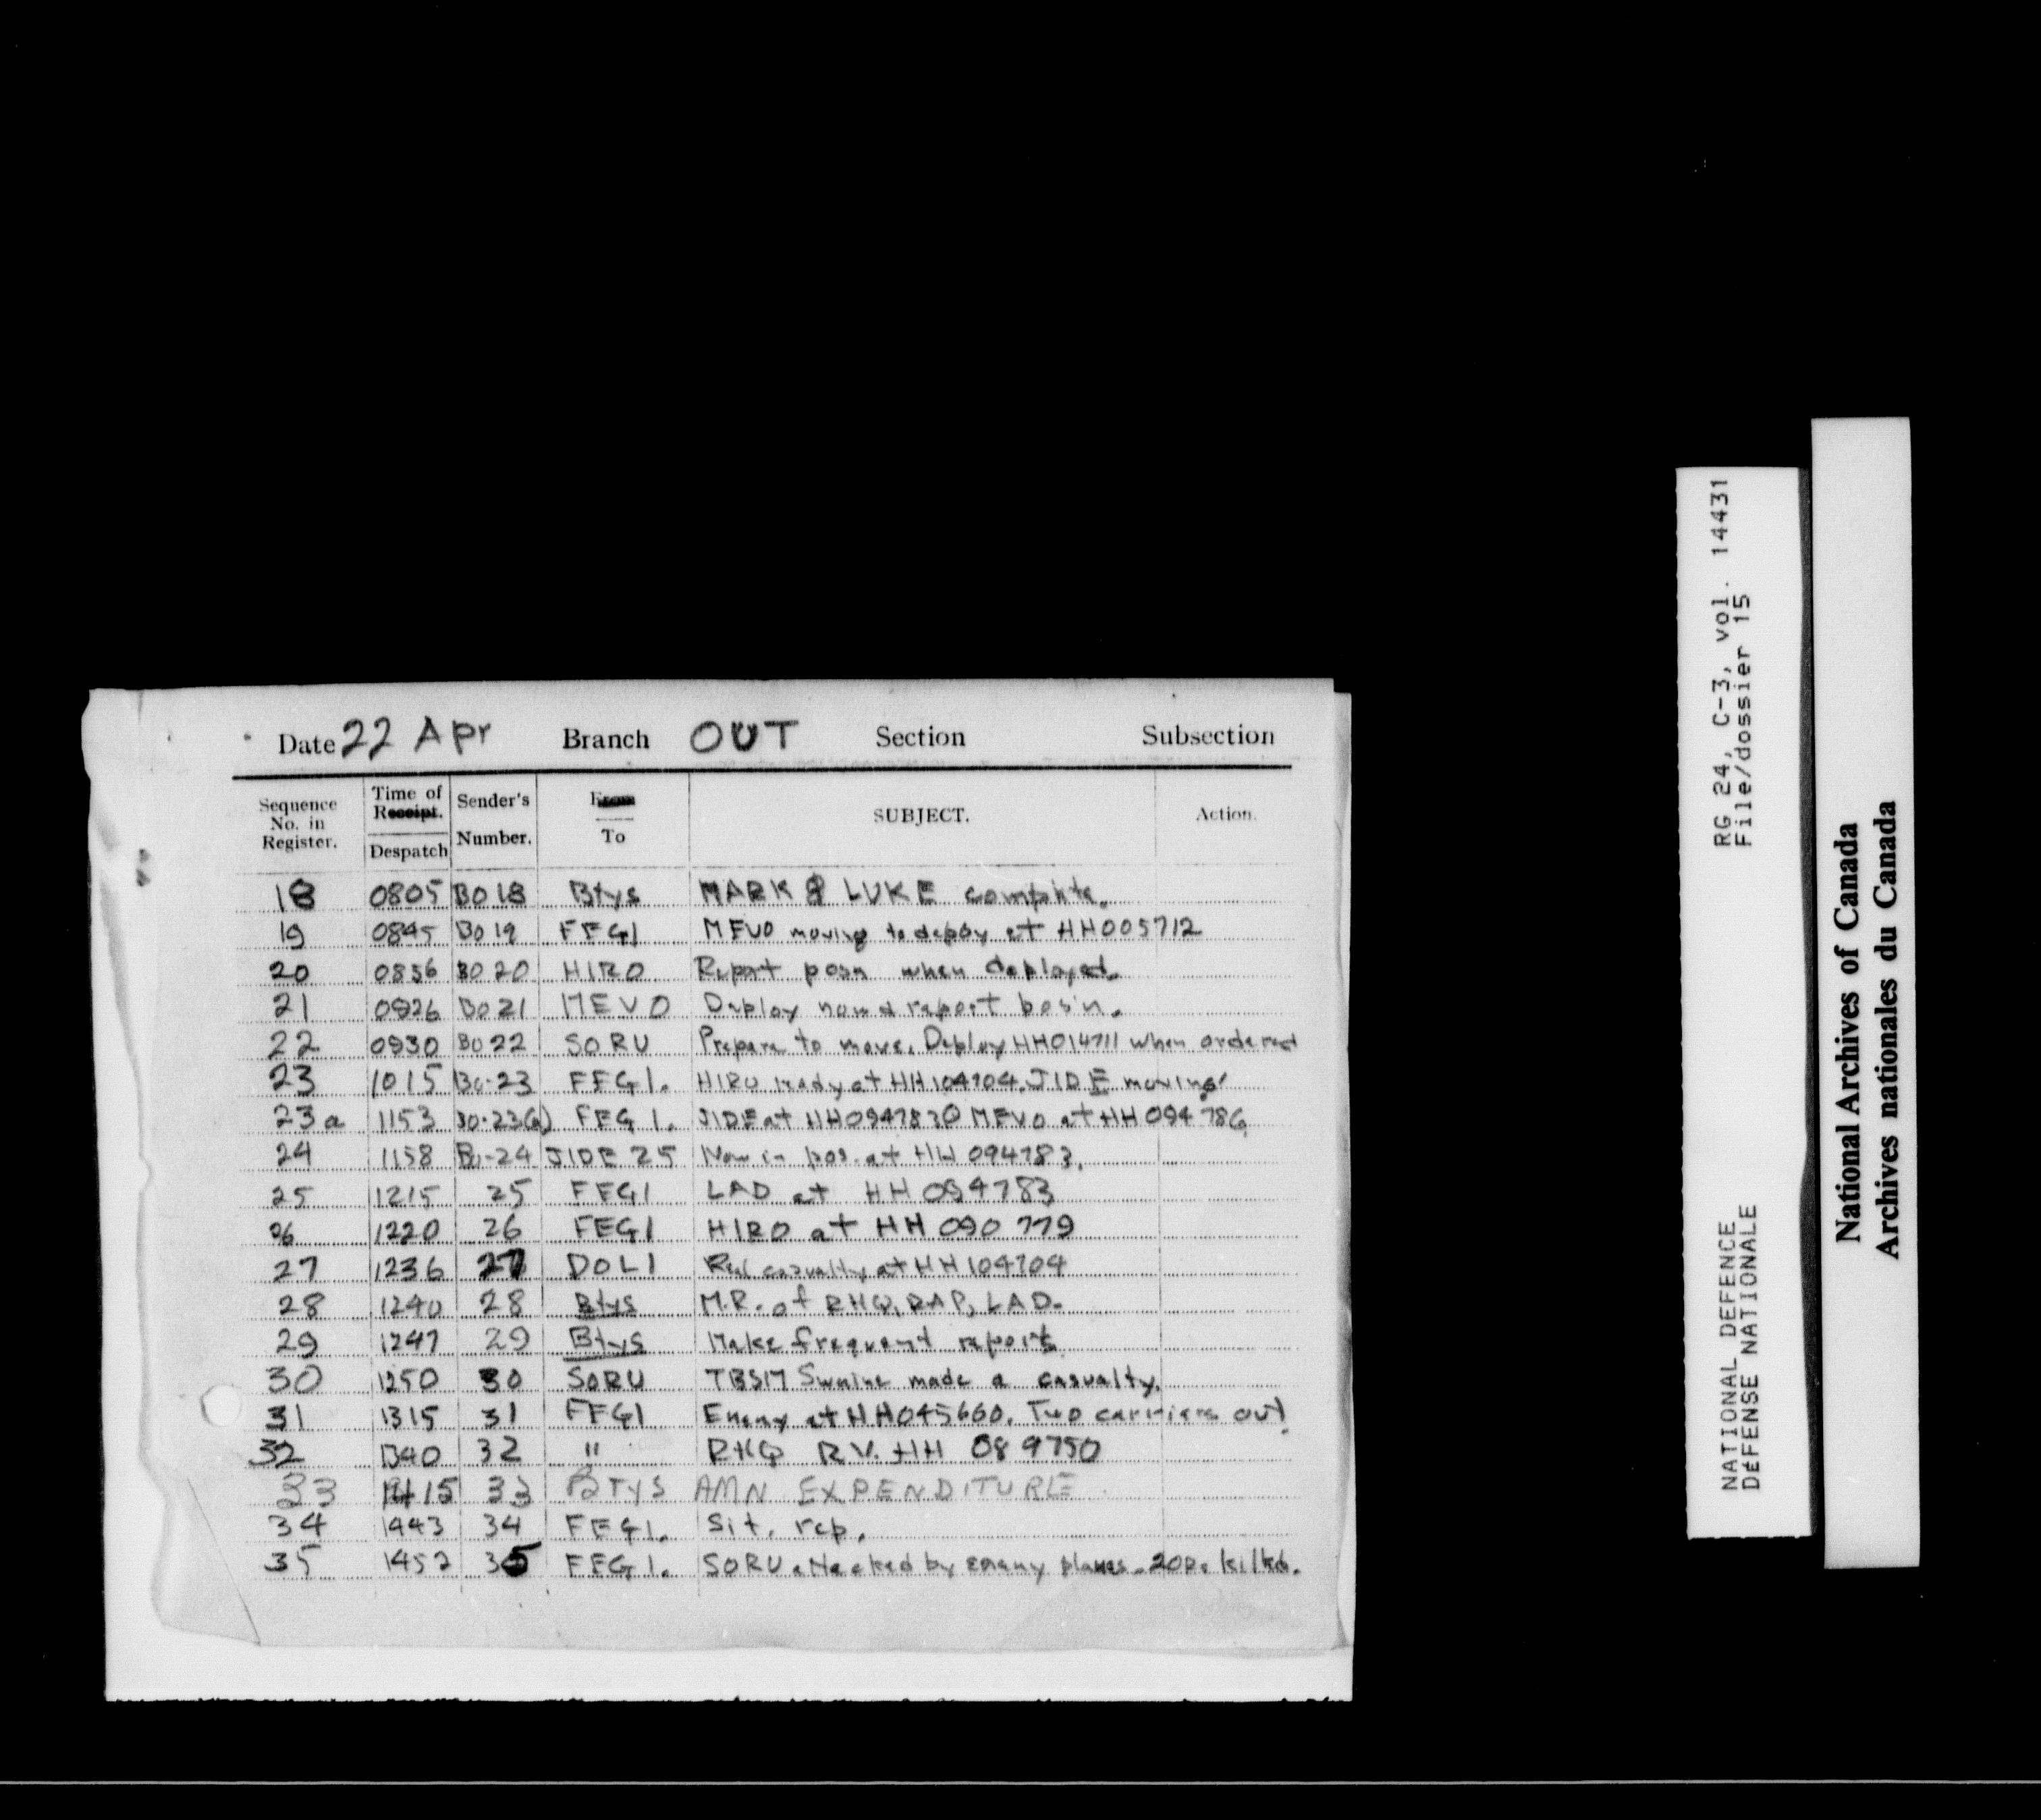 Date 22 Apr Branch OUT Section Subsection
Sequence No. in Register. Time of Receipt. Despatch Sender's Number. From To SUBJECT. Action.
18 0805 BO 18 Btys MARK & LUKE complete.
19 0845 BO 19 FEGI MEVO moving to deploy at HH005712
20 0856 BO 20 HIRO Report posn when deployed.
21 0926 BO 21 MEVO Deploy now & report posn.
22 0930 BO 22 SORU Prepare to move. Deploy HH014711 when ordered
23 1015 BO-23 FEGI. HIRO ready at HH104704. JIDE moving.
23a 1153 BO-23(a) FEGI. JIDE at HH094783 MEVO at HH094786
24 1158 BO-24 JIDE 25 Now in pos. at HH 094783.
25 1215 25 FEGI LAD at HH 094783
26 1220 26 FEGI HIRO at HH 090 779
27 1236 27 DOLI casualty at HH104704
28 1240 28 Btys M.R. of RHQ, RAP, LAD.
29 1247 29 Btys Make frequent reports
30 1250 30 SORU made a casualty.
31 1315 31 FEGI Enemy at HH045660. Two carriers out
32 1340 32 " RHQ RV. HH 089750
33 1415 33 BTYS AMN EXPENDITURE
34 1443 34 FEGI. Sit. rep.
35 1452 35 FEGI. SORU attacked by enemy planes. 2 O.R. killed.
RG 24, C-3, vol. 14431
File/dossier 15
NATIONAL DEFENCE
DÉFENSE NATIONALE
National Archives of Canada
Archives nationales du Canada